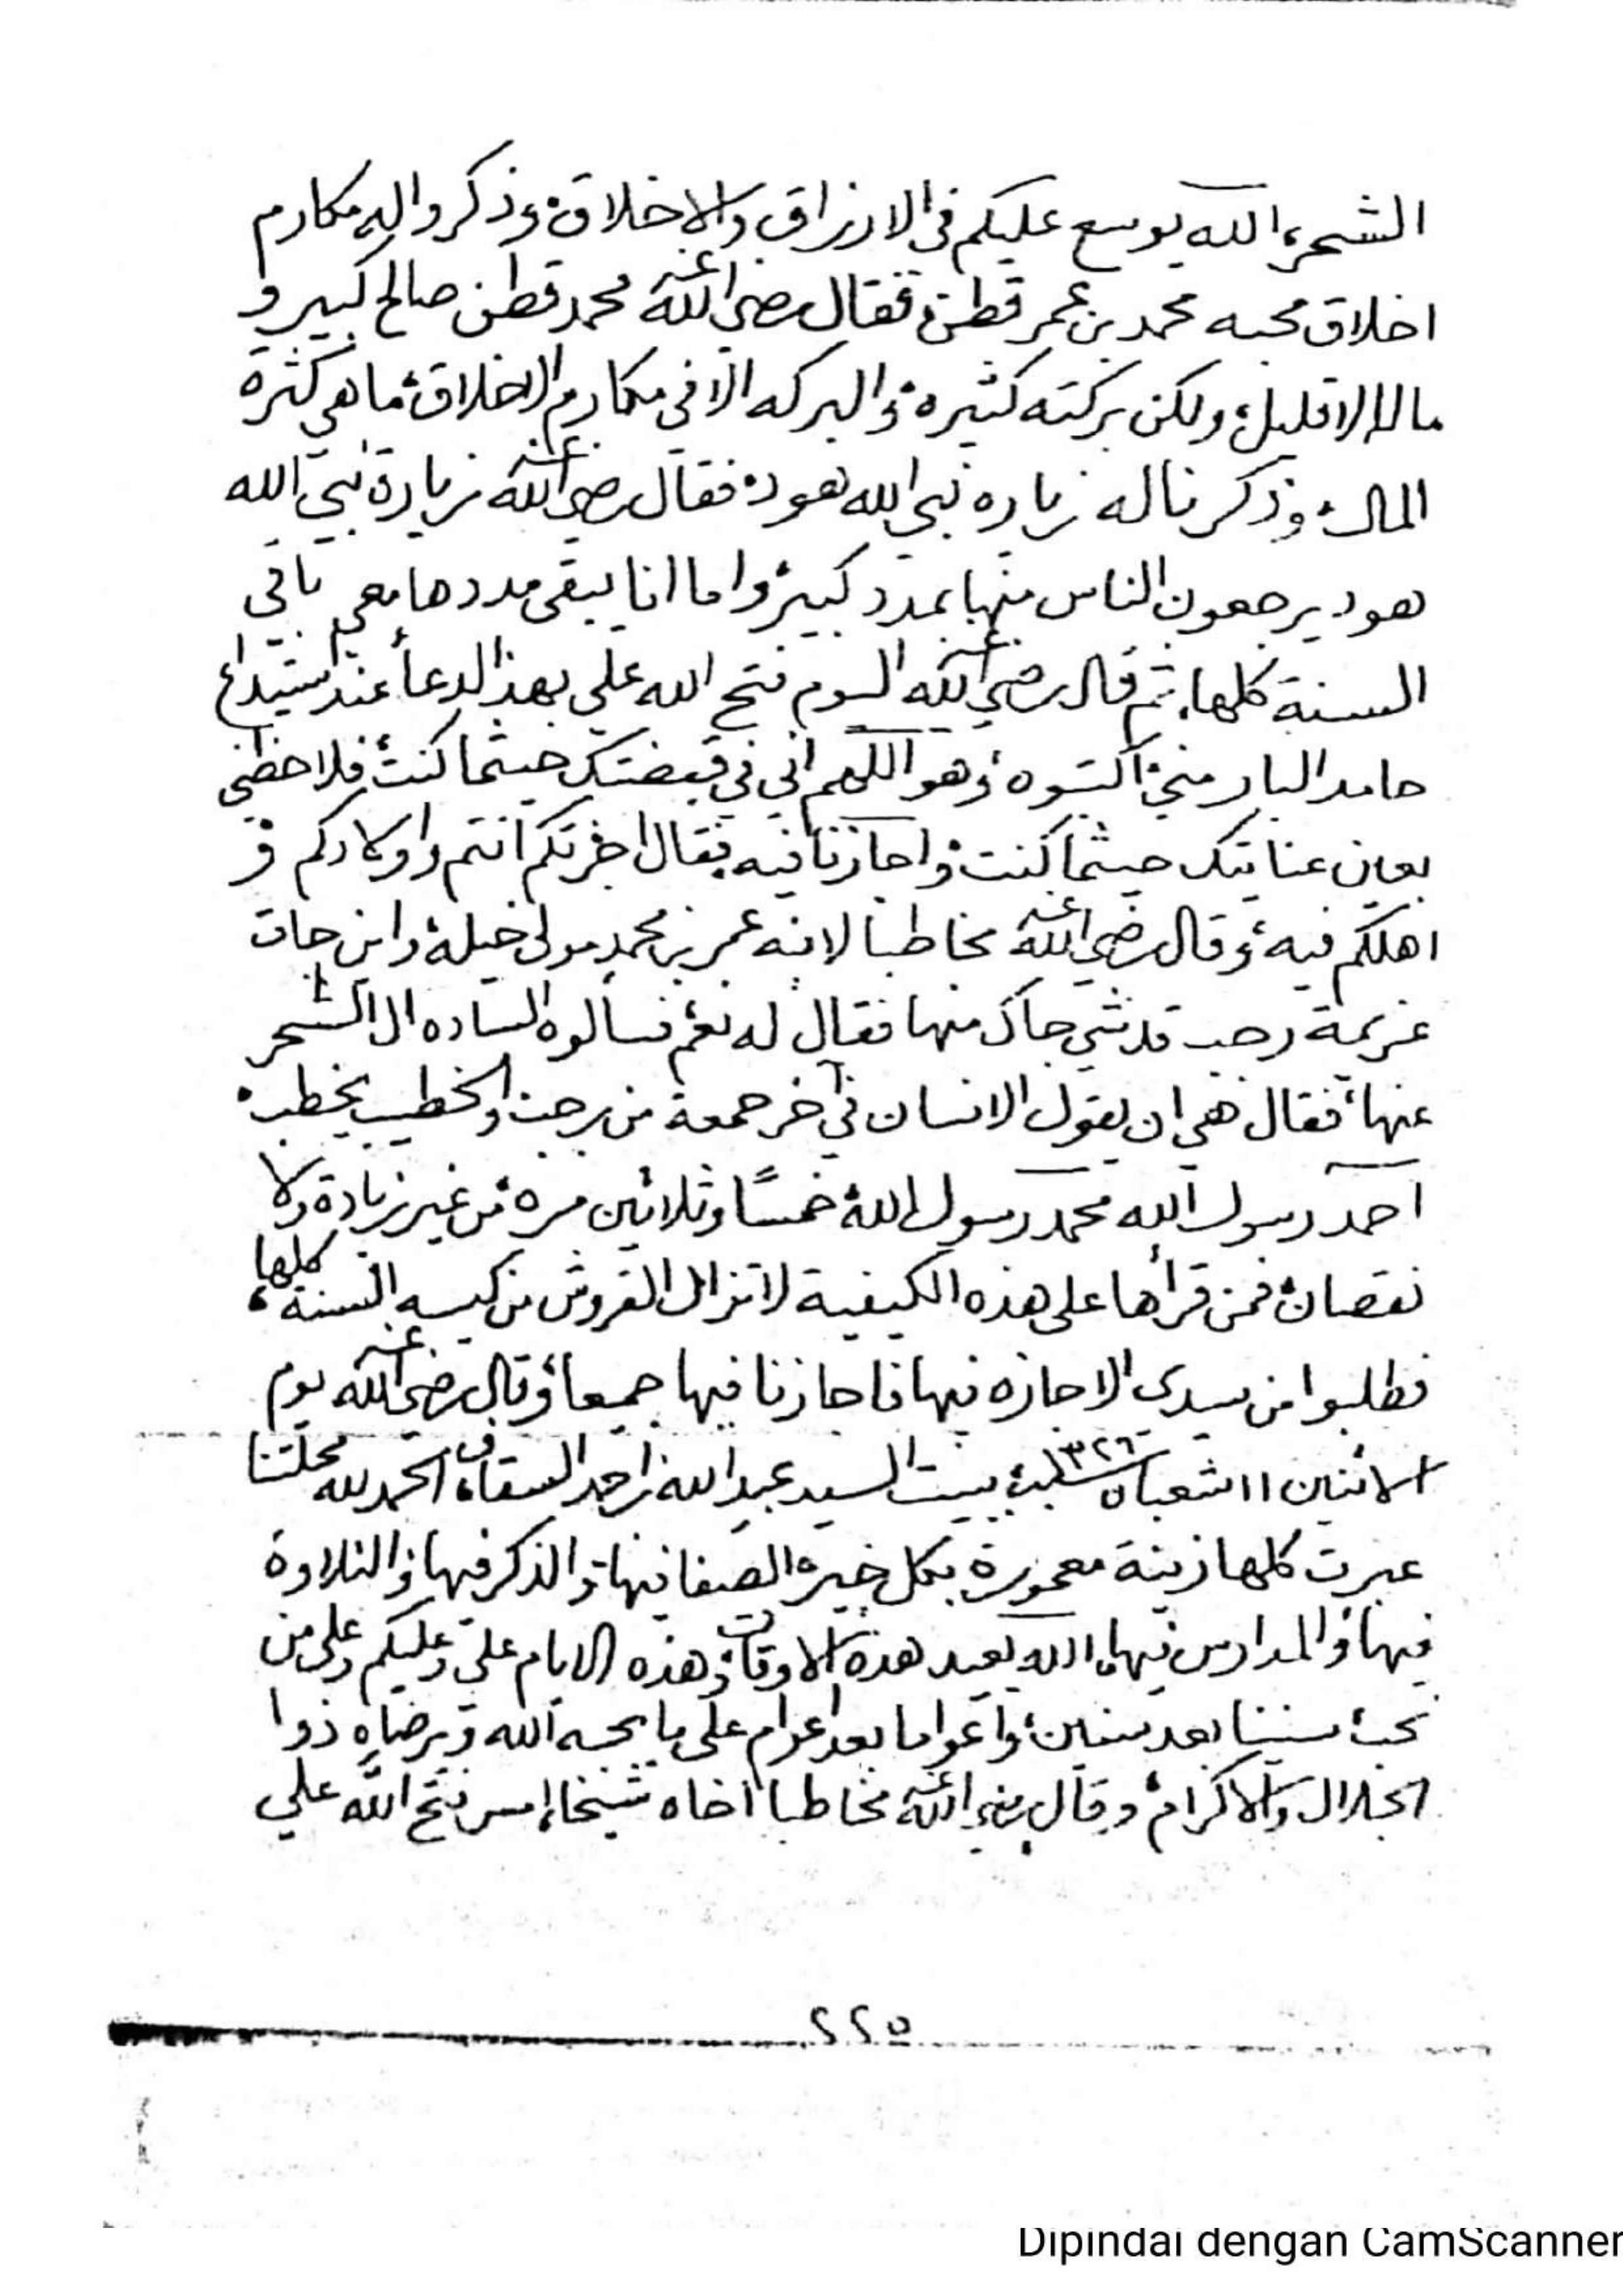 الشحر، الله يوسع عليكم في الارزاق والاخلاق، وذكروا اليه مكارم
اخلاق محبه محمد بن عمر قطن، فقال رضي الله عنه محمد قطن صالح كبير و
ماله الا قليل، ولكن بركته كثيره، والبركه الا في مكارم الاخلاق، ما هي كثرة
المال، وذكر ناله زياره نبي الله هود، فقال رضي الله عنه زيارة نبي الله
هود يرجعون الناس منها بمدد كبير، واما انا يبقى مددها معي باقي
السنة كلها، ثم قال رضي الله عنه اليوم فتح الله علي بهذ الدعا عند سيد
حامد البار مني اكتبوه، وهو اللهم اني في قبضتك حيثما كنت، فلاحظني
بعين عنايتك حيثما كنت، واجازنا فيه، فقال اجزتكم انتم واولادكم و
اهلكم فيه، وقال رضي الله عنه مخاطبا لابنه عمر بن محمد مولى خيله، واين جات
عزيمة رجب قد شي جاك منها فقال له نعم، فسالوه الساده ال الشحر
عنها، فقال هي ان يقول الانسان في آخر جمعة من رجب والخطيب يخطب،
احمد رسول الله محمد رسول الله، خمسًا وثلاثين مره، من غير زيادة ولا
نقصان، فمن قرأها على هذه الكيفية لا تزال القروش من كيسه السنة كلها،
فطلبوا من سيدي الاجازه فيها فاجازنا فيها جميعا، وقال رضي الله عنه يوم
الاثنين ١١ شعبان ١٣٢٦ ببيت السيد عبد الله بن احمد السقاف، الحمد لله محلتنا
عبرت كلها زينة معمورة بكل خير، الصفا فيها، والذكر فيها، والتلاوة
فيها، والمدارس فيها، الله يعيد هذه الاوقات، وهذه الايام علي وعليكم وعلى من
نحب، سنينا بعد سنين، واعواما بعد اعوام على ما يحبه الله ويرضاه ذوا
الجلال والاكرام، وقال رضي الله عنه مخاطبا اخاه شيخا، امس فتح الله علي
٢٢٥
Dipindai dengan CamScanner